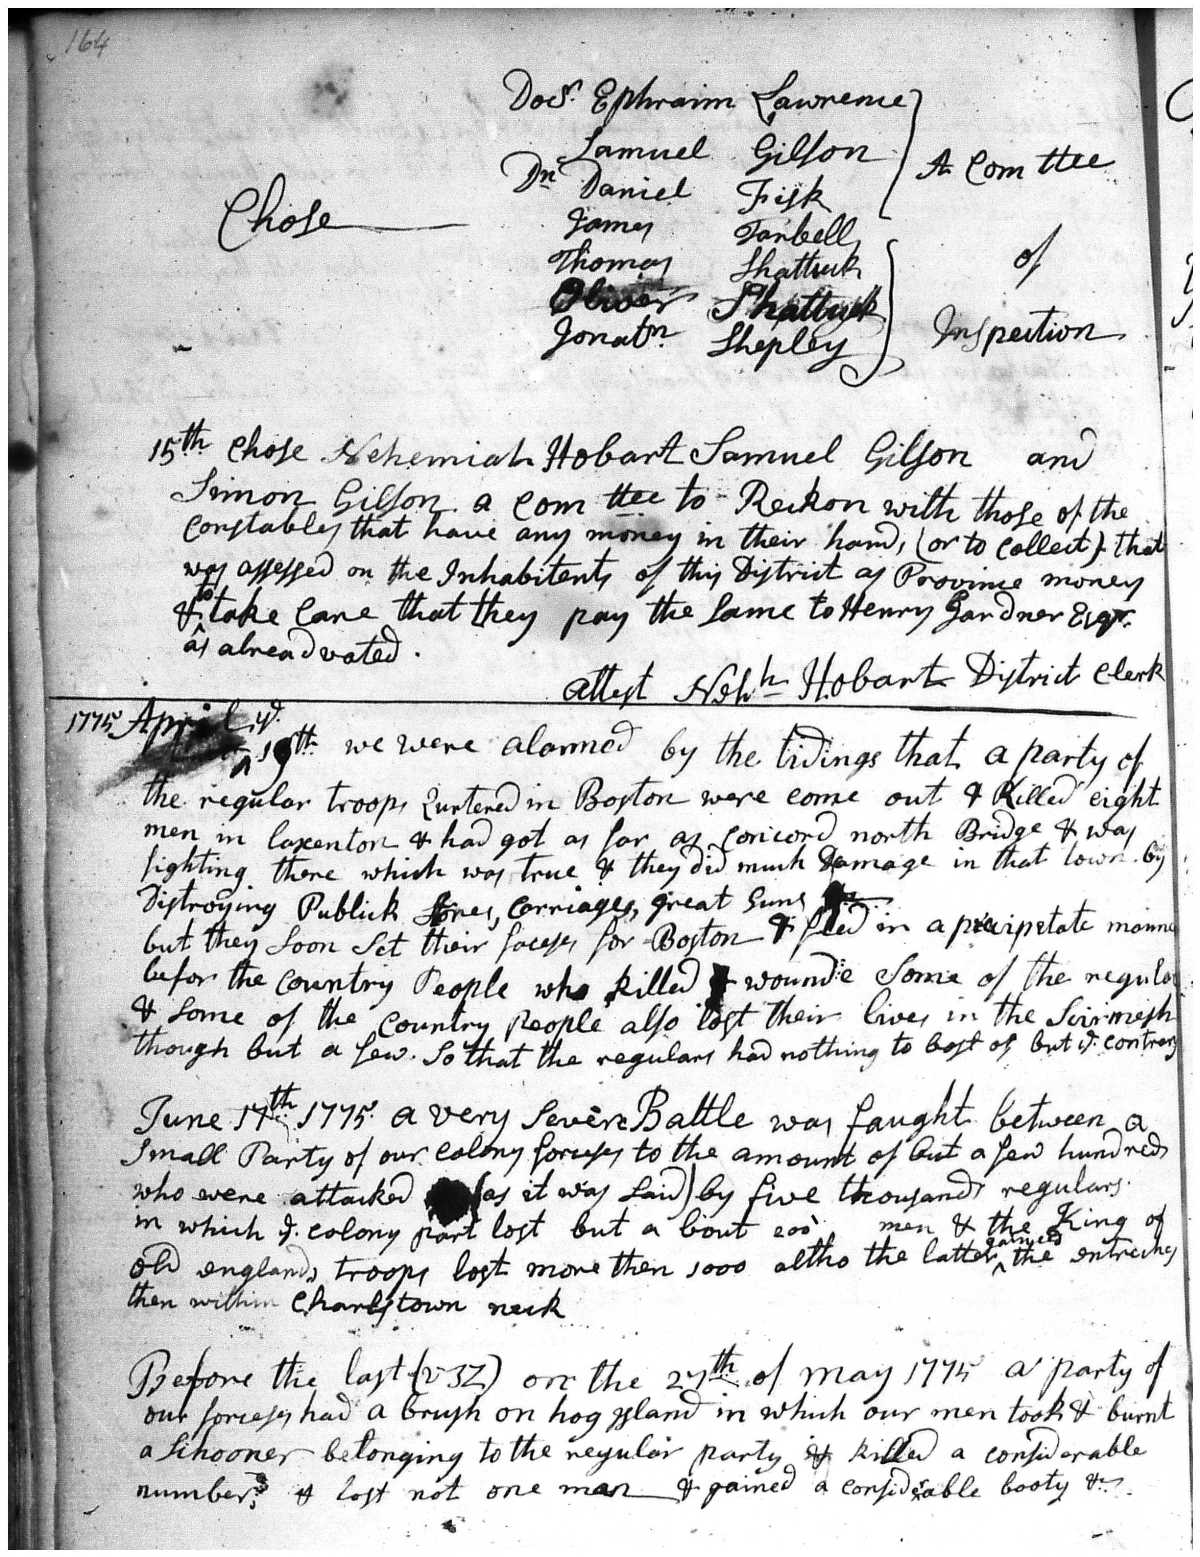 164
Docr. Ephraim Lawrence
Samuel Gilson
Dn Daniel Fisk
A Com ttee
Chose
James Tarbell
Thomas Shattuck
of
Oliver Shattuck
Jonatn. Shepley
Inspection
15th Chose Nehemiah Hobart Samuel Gilson and
Simon Gilson a Com ttee to Reckon with those of the
Constables that have any money in their hands (or to Collect) that
was assessed on the Inhabitents of this District as Province money
& to take Care that they pay the Same to Henry Gardner Esqr.
as alread voted.
attest Nehh Hobart District Clerk
1775 April ye.
19th we were alarmed by the tidings that a party of
the regular troops Qurtered in Boston were come out & Killed eight
men in laxenton & had got as far as Concord north Bridge & was
fighting there which was true & they did much Damage in that town by
Distroying Publick Stores, Carriages, great Guns
but they Soon Set their faceses for Boston & fled in a precipetate manne
befor the Country People who killed & wounde Some of the regular
& Some of the Country People also lost their lives in the Scirmesh
though but a few. So that the regulars had nothing to bost of but ye. contrary
June 17th 1775 a very Severe Battle was faught between a
Small Party of our Colony forceses to the amount of but a few hundreds
who were attacked (as it was Said) by five thousands regulars
in which ye. Colony part lost but a bout 200 men & the King of
old englands troops lost more then 1000 altho the latter gained the entreches
then within Charlstown neck
Before the last (v 32) on the 27th of may 1775 a party of
our forceses had a brush on hog Island in which our men took & burnt
a Schooner belonging to the regular party & killed a considerable
numbers & lost not one man & gained a considerable booty &c